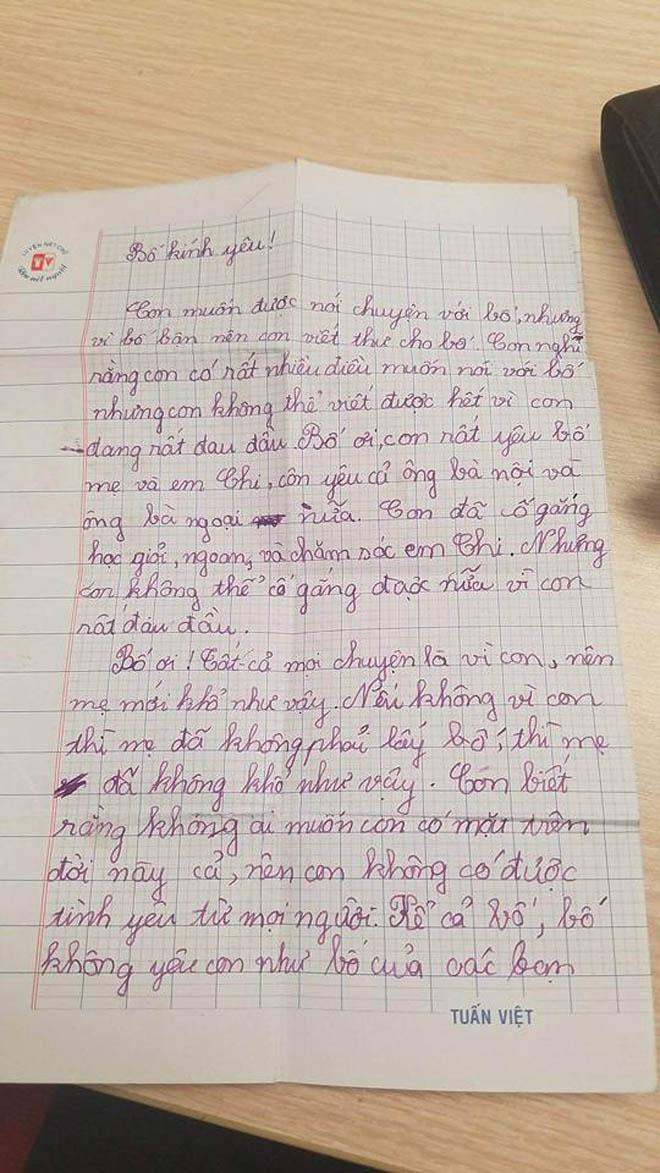 LUYỆN NÉT CHỮ
TV
Rèn nết người
Bố kính yêu!
Con muốn được nói chuyện với bố, nhưng
vì bố bận nên con viết thư cho bố. Con nghĩ
rằng con có rất nhiều điều muốn nói với bố
nhưng con không thể viết được hết vì con
đang rất đau đầu. Bố ơi, con rất yêu bố
mẹ và em Chi, còn yêu cả ông bà nội và
ông bà ngoại nữa. Con đã cố gắng
học giỏi, ngoan, và chăm sóc em Chi. Nhưng
con không thể cố gắng được nữa vì con
rất đau đầu.
Bố ơi! Tất cả mọi chuyện là vì con, nên
mẹ mới khổ như vậy. Nếu không vì con
thì mẹ đã không phải lấy bố, thì mẹ
đã không khổ như vậy. Con biết
rằng không ai muốn con có mặt trên
đời này cả, nên con không có được
tình yêu từ mọi người. Kể cả bố, bố
không yêu con như bố của các bạn
TUẤN VIỆT